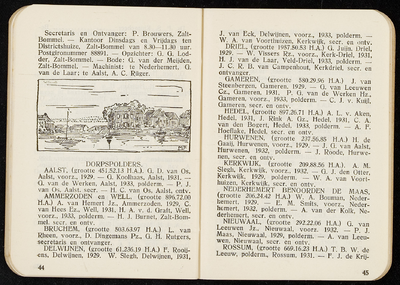 Secretaris en Ontvanger: P. Brouwers, Zalt-
Bommel. — Kantoor Dinsdags en Vrijdags ten
Districtshuize, Zalt-Bommel van 8.30—11.30 uur.
Postgironummer 88891. — Opzichter: G. G. Lod-
der, Zalt-Bommel. — Bode: G. van der Meijden,
Zalt-Bommel. — Machinist: te Nederhemert, G.
van de Laar; te Aalst, A. C. Rüger.
DORPSPOLDERS.
AALST, (grootte 451.52.13 H.A.) G. D. van Os,
Aalst, voorz., 1929. — G. Kooihaas, Aalst, 1931. —
G. van de Werken, Aalst, 1933, polderm. — P. J.
van Os, Aalst, secr. — H. C. van Os, Aalst, ontv.
AMMERZODEN en WELL, (grootte 896.72.00
H.A.) A. van Hemert Jz., Ammerzoden, 1929, C.
van Hees Ez., Well, 1931, H. A. v. d. Graft, Well,
voorz., 1933, polderm. — H. J. Burnet, Zalt-Bom-
mel, secr. en ontv.
BRUCHEM, (grootte 803.63.97 H.A.) L. van
Rheen, voorz., D. Dingemans Pz., G. H. Rutgers,
secretaris en ontvanger.
DELWIJNEN, (grootte 61.236.19 H.A.) F. Rooij-
ens, Delwijnen, 1929. W. Slegh, Delwijnen, 1931,
44
J. van Eck, Delwijnen, voorz., 1933, polderm. —
W. A. van Voorthuizen, Kerkwijk, secr. en ontv.
DRIEL, (grootte 1937.80.53 H.A.) G. Juijn, Driel,
1929. — W. Vissers Rz., voorz., Kerk-Driel, 1931.
H. J. van de Laar, Veld-Driel, 1933, polderm. —
J. C. R. B. van Campenhout, Kerkdriel, secr. en
ontvanger.
GAMEREN, (grootte 580.29.96 H.A.) J. van
Steenbergen, Gameren, 1929. — G. van Leeuwen
Cz., Gameren, 1931. P. G. van de Werken Hz.,
Gameren, voorz., 1933, polderm. — C. J. v. Kuijl,
Gameren, secr. en ontv.
HEDEL, (grootte 897.26.71 H.A.) A. L. v. Aken,
Hedel, 1931, J. Rink A. Gz., Hedel, 1931, C. A.
van den Bogert, Hedel, 1933, polderm. — A. F.
Hoeflake, Hedel, secr. en ontv.
HURWENEN, (grootte 237.56.85 H.A.) H. de
Gaaij, Hurwenen, voorz., 1929. — J. G. van Aalst,
Hurwenen, 1932, polderm. — J. Roode, Hurwe-
nen, secr. en ontv.
KERKWIJK, (grootte 209.88.56 H.A.) A. M.
Slegh, Kerkwijk, voorz., 1932. — G. J. den Otter,
Kerkwijk, 1929, polderm. — W. A. van Voort-
huizen, Kerkwijk, secr. en ontv.
NEDERHEMERT BENOORDEN DE MAAS,
(grootte 206.36.42 H.A.) W. A. Bouman, Neder-
hemert, 1929. — E. M. Smits, voorz., Neder-
hemert, 1932, polderm. — A. van der Kolk, Ne-
derhemert, secr. en ontv.
NIEUWAAL, (grootte 292.22.06 H.A.) G. van
Leeuwen Jz., Nieuwaal, voorz., 1932. — P. J.
Maas, Nieuwaal, 1929, polderm. — A. van Leeu-
wen, Nieuwaal, secr. en ontv.
ROSSUM, (grootte 669.16.23 H.A.) T. B. W. de
Leeuw, polderm., Rossum, 1931. — F. J. de Krij-
45